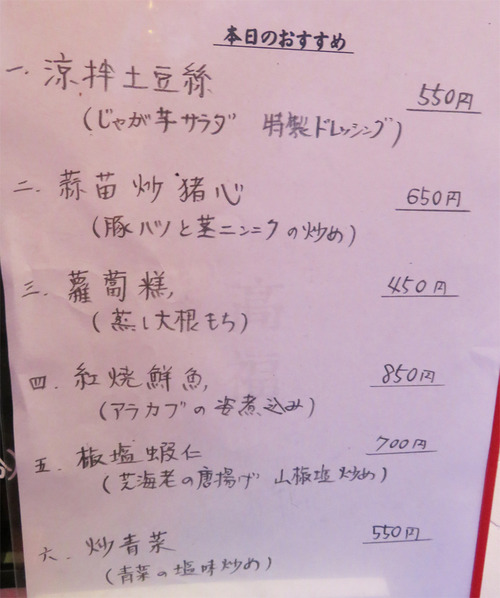 本日のおすすめ
一. 涼拌土豆絲 550円
(じゃが芋サラダ 特製ドレッシング)
二. 蒜苗炒猪心 650円
(豚ハツと茎ニンニクの炒め)
三. 蘿蔔糕 450円
(蒸し大根もち)
四. 紅焼鮮魚 850円
(アラカブの姿煮込み)
五. 椒塩蝦仁 700円
(芝海老の唐揚げ 山椒塩炒め)
六. 炒青菜 550円
(青菜の塩味炒め)